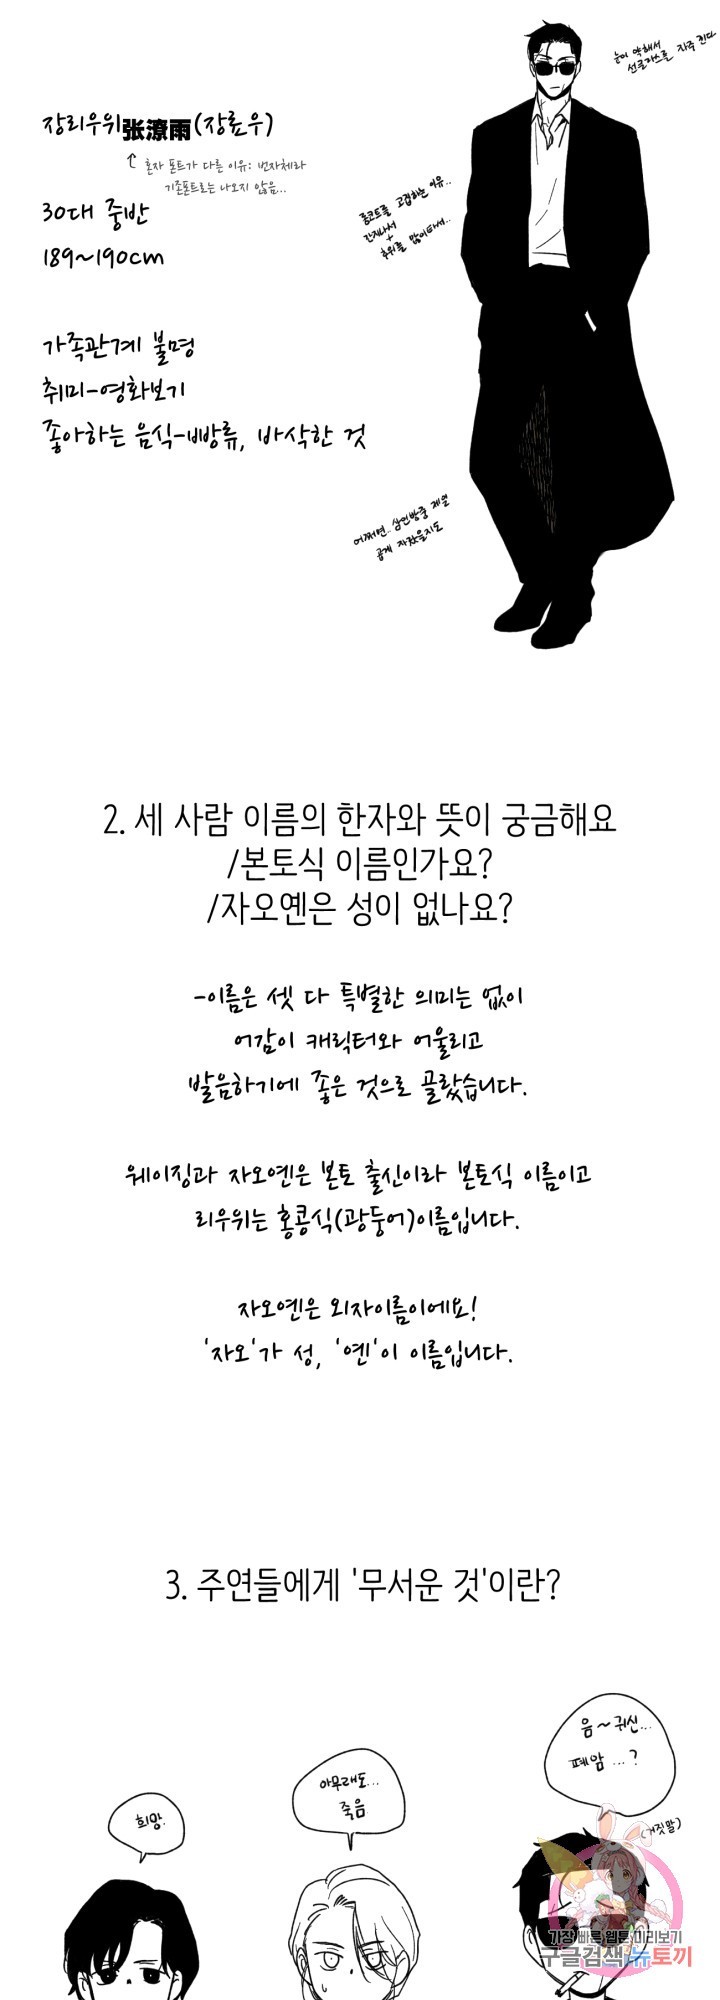 눈이 약해서
선글라스를 자주 낀다
장리우위张潦雨(장료우)
혼자 폰트가 다른 이유: 번자체라
기존폰트로는 나오지 않음...
30대 중반
189~190cm
롱코트를 고집하는 이유..
간지나서
+
추위를 많이타서..
가족관계 불명
취미-영화보기
좋아하는 음식-빵류, 바삭한 것
어쩌면.. 삼인방중 제일
곱게 자랐을지도
2. 세 사람 이름의 한자와 뜻이 궁금해요
/본토식 이름인가요?
/자오옌은 성이 없나요?
-이름은 셋 다 특별한 의미는 없이
어감이 캐릭터와 어울리고
발음하기에 좋은 것으로 골랐습니다.
웨이징과 자오옌은 본토 출신이라 본토식 이름이고
리우위는 홍콩식(광둥어)이름입니다.
자오옌은 외자이름이에요!
'자오'가 성, '옌'이 이름입니다.
3. 주연들에게 '무서운 것'이란?
음~귀신...
폐암 ...?
아무래도...
죽음
희망.
(거짓말)
가장 빠른 웹툰 미리보기
구글검색.뉴토끼